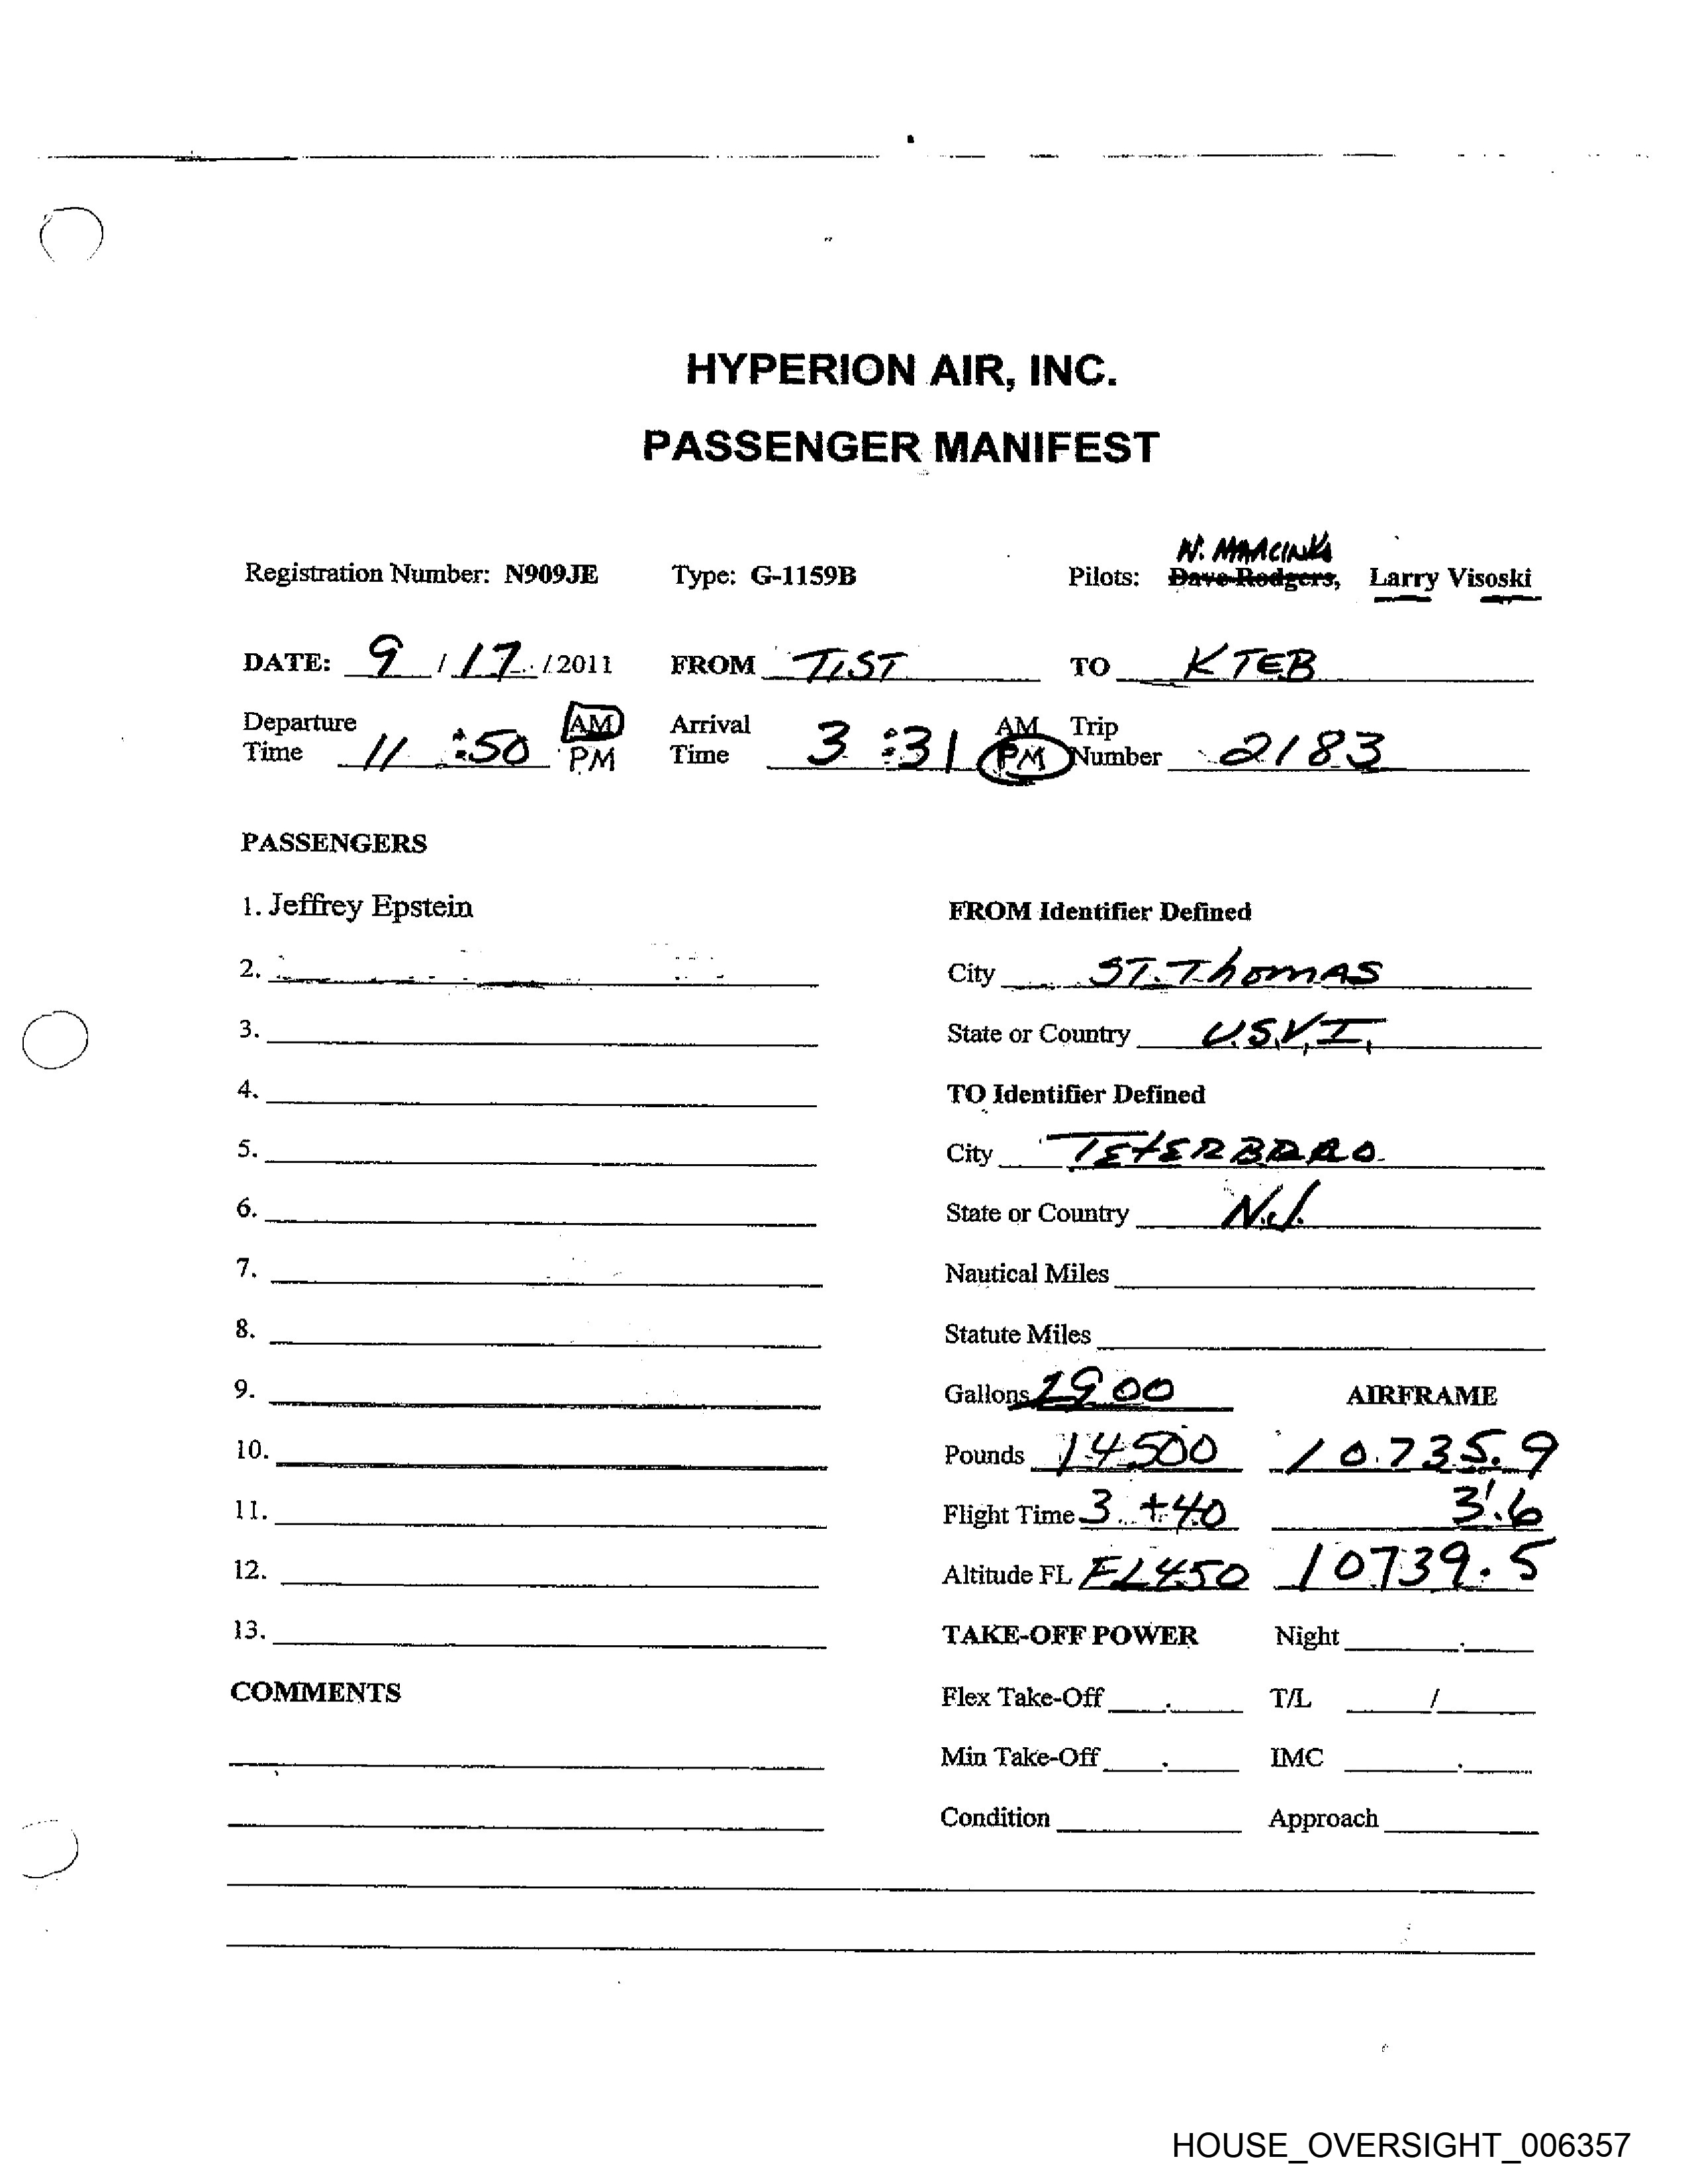 HYPERION AIR, INC.
PASSENGER MANIFEST
N. MARCINKO
Registration Number: N909JE Type: G-1159B Pilots: Dave Rodgers, Larry Visoski
DATE: 9 / 17 / 2011 FROM TIST TO KTEB
Departure Time 11 :50 AM PM Arrival Time 3 :31 AM PM Trip Number 2183
PASSENGERS
1. Jeffrey Epstein FROM Identifier Defined
2. City ST. Thomas
3. State or Country U.S.V.I.
4. TO Identifier Defined
5. City TETERBORO
6. State or Country N.J.
7. Nautical Miles
8. Statute Miles
9. Gallons 2900 AIRFRAME
10. Pounds 14500 10735.9
11. Flight Time 3 + 40 3.6
12. Altitude FL FL450 10739.5
13. TAKE-OFF POWER Night .
COMMENTS Flex Take-Off . T/L /
Min Take-Off . IMC .
Condition Approach
HOUSE_OVERSIGHT_006357